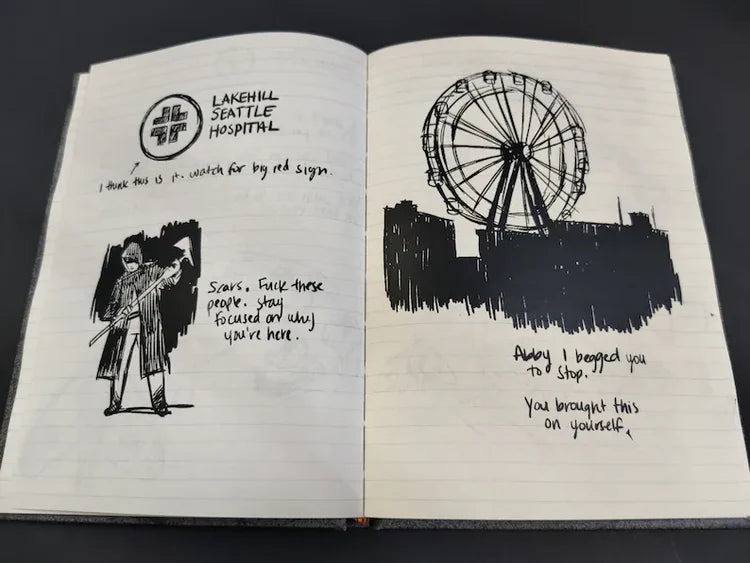 LAKEHILL
SEATTLE
HOSPITAL
I think this is it. watch for big red sign.
Scars. Fuck these
people. Stay
focused on why
you're here.
Abby I begged you
to stop.
You brought this
on yourself.